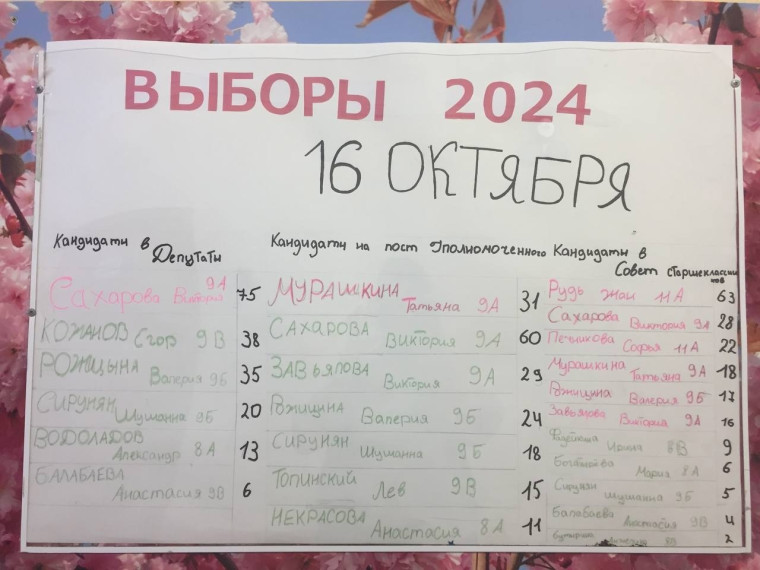 ВЫБОРЫ 2024
16 ОКТЯБРЯ
Кандидаты в Депутаты
Сахарова Виктория 9А 75
КОЖАНОВ Егор 9В 38
РОЖИЦЫНА Валерия 9Б 35
СИРУНЯН Шушанна 9Б 20
ВОДОЛАДОВ Александр 8А 13
БАЛАБАЕВА Анастасия 9В 6
Кандидаты на пост Уполномоченного
МУРАШКИНА Татьяна 9А 31
САХАРОВА Виктория 9А 60
ЗАВЬЯЛОВА Виктория 9А 29
Рожицина Валерия 9Б 24
СИРУНЯН Шушанна 9Б 18
Топинский Лев 9В 15
НЕКРАСОВА Анастасия 8А 11
Кандидаты в Совет старшеклассников
Рудь 11А 63
Сахарова Виктория 9А 28
Печникова Софья 11А 22
Мурашкина Татьяна 9А 18
Рожицина Валерия 9Б 17
Завьялова Виктория 9А 16
Ирина 8В 9
Мария 8А 6
Сирунян Шушанна 9Б 5
Балабаева Анастасия 9В 4
2